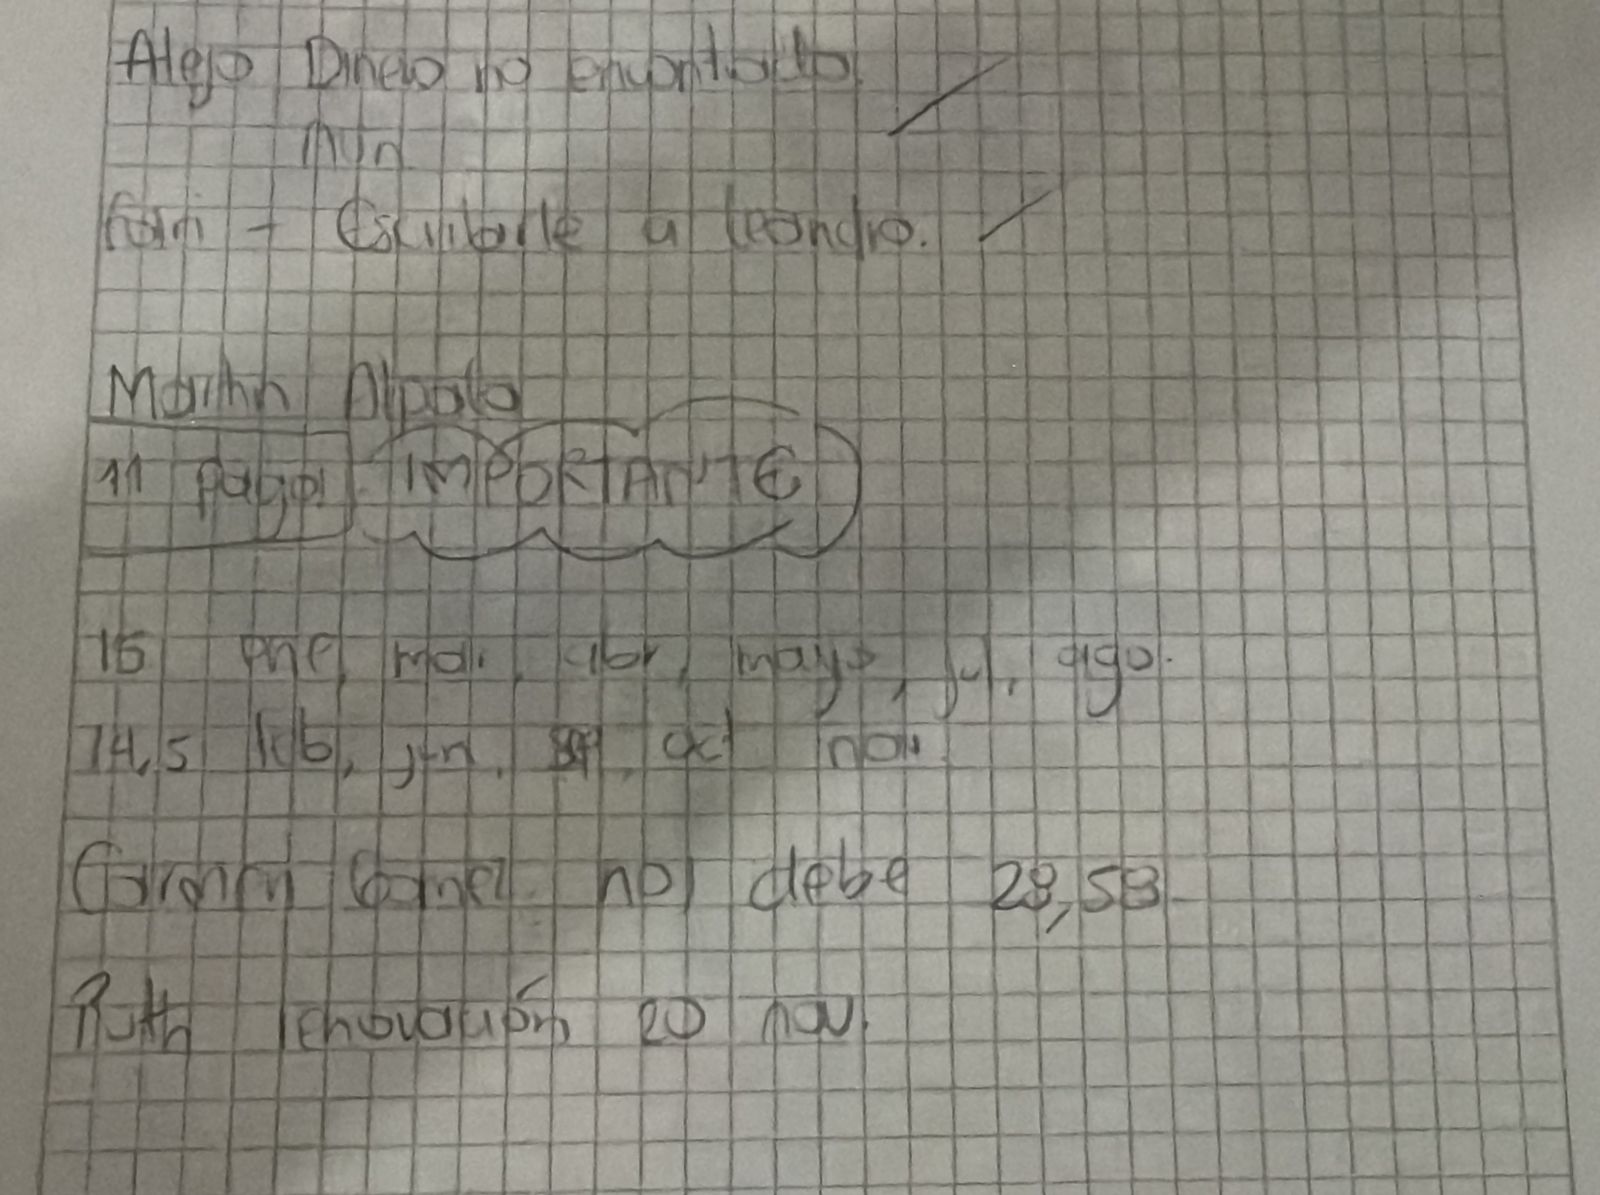 Alejo Dinero no encontrado.
Aún
Fari - Escribirle a Leandro.
Martin
11 pagos IMPORTANTE
15 ene, mar., abr, mayo, jul, ago.
14,5 feb, jun, sep, oct nov.
Gomez no debe 28,58
Ruth renovación 20 nov.